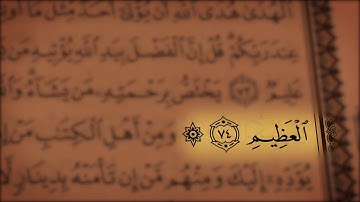 ٱلْهُدَىٰ هُدَى ٱللَّهِ أَن يُؤْتَىٰٓ أَحَدٌ مِّثْلَ مَآ
عِندَ رَبِّكُمْ قُلْ إِنَّ ٱلْفَضْلَ بِيَدِ ٱللَّهِ يُؤْتِيهِ مَن
عَلِيمٌ ٧٣ يَخْتَصُّ بِرَحْمَتِهِۦ مَن يَشَآءُ
ٱلْعَظِيمِ ٧٤ ۞ وَمِنْ أَهْلِ ٱلْكِتَٰبِ مَنْ
يُؤَدِّهِۦٓ إِلَيْكَ وَمِنْهُم مَّنْ إِن تَأْمَنْهُ بِدِينَارٍ لَّا